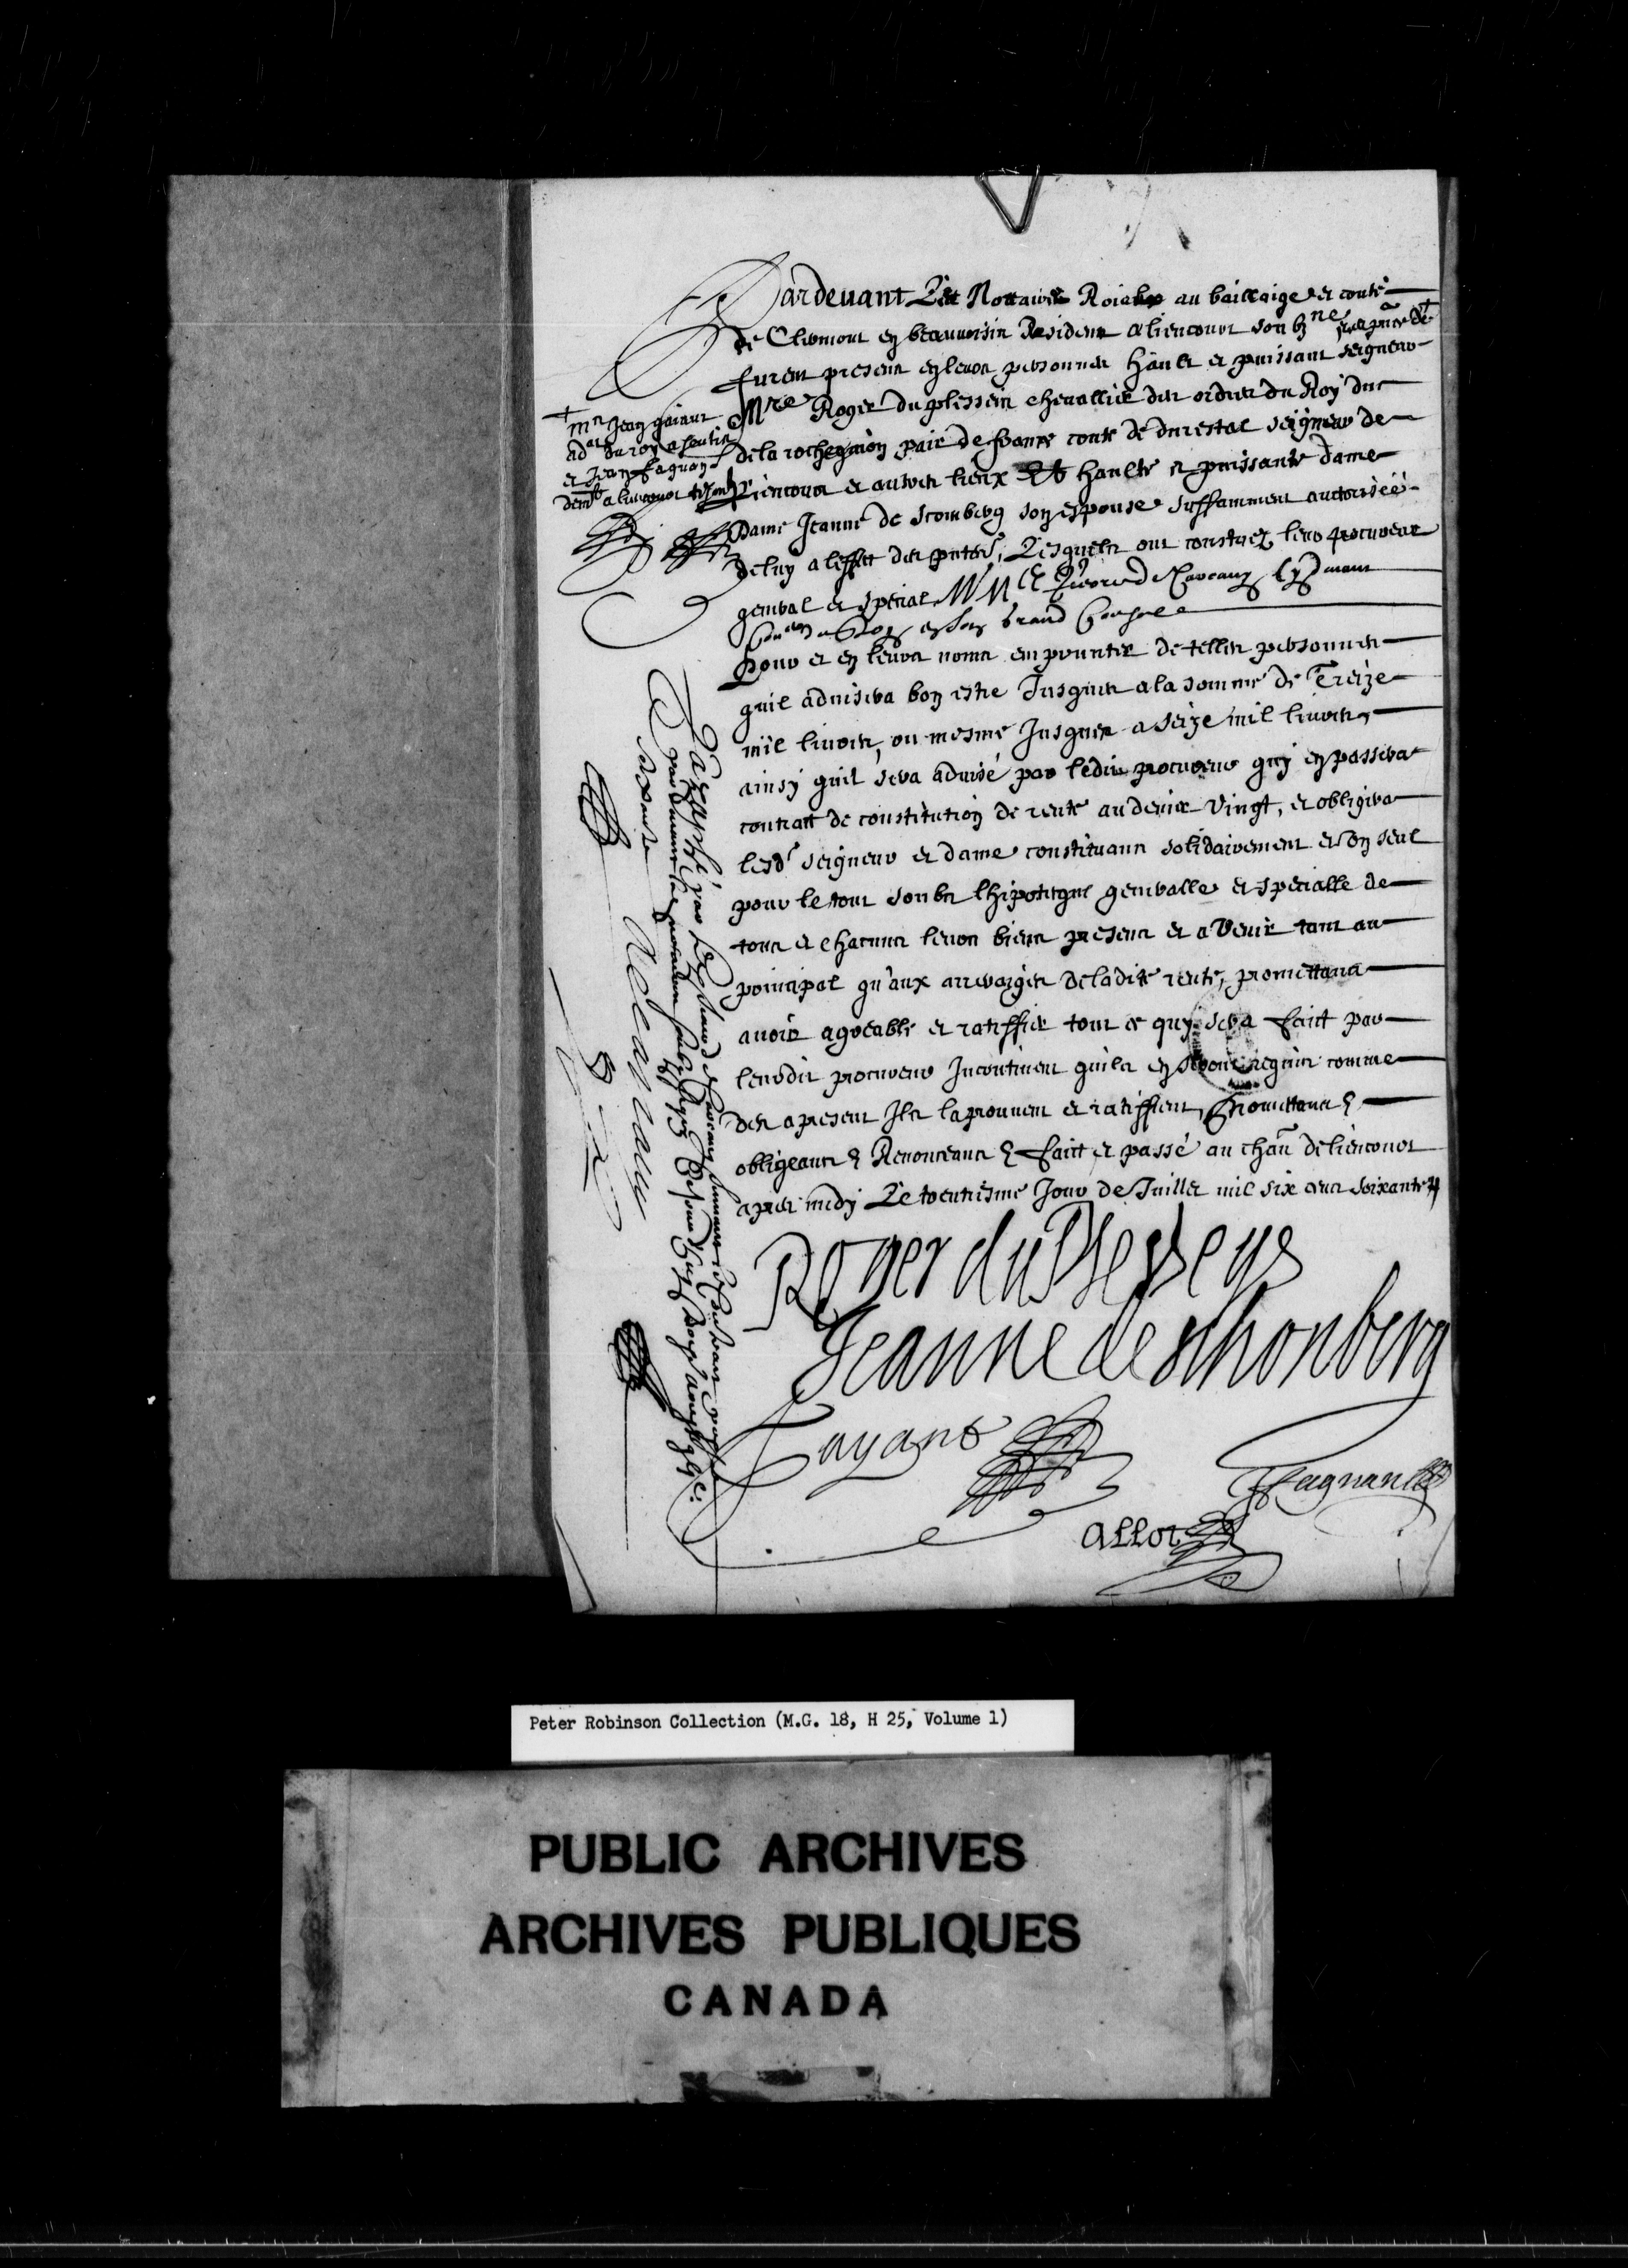 Pardevant Les Nottaires Roiaux au bailliaige et conté
de Clermont en beauvoisin Residens a liencourt soubz.nez et es p̃nces de +
furent presens en leurs personnes hault et puissant seigneur
Mre Roger du plesseis chevallier des ordres du Roy duc
de la rocheguion pair de france conte de durestal seigneur de
Liencourt et autres lieux Et haulte et puissante dame
Dame Jeanne de scomberg son espouse suffisamment auctorisée
de luy a leffect des pntes, Lesquels ont constitué leur procureur
general et special Me Pierre de
Coner du Roy en son Grand Conseil
Pour et en leurs noms emprunter de telles personnes
quil advisera bon estre Jusques a la somme de Treize
mil livres, ou mesme Jusques a seize mil livres,
ainsy quil sera advisé par ledit procureur quy en passera
contract de constitution de rente au denier vingt, et obligera
lesd. seigneur et dame constituans solidairement et un seul
pour le tout soubz lhipoteque generalle et specialle de
tous et chacuns leurs biens presens et a venir tant au
principal qu'aux arrerages de ladite rente, promettans
avoir agreable et ratiffier tout ce quy sera faict par
leurdit procureur Incontinent quils en seront requis comme
des apresent Ils laprouvent et ratiffient, Promettans &
obligeans & Renonceans & faict et passé au chaũ de liencourt
apres midy Le trentiesme Jour de Juillet mil six cens soixante
+ Mre Jean
du roy a
et Jean fagnan
demt a liencourt tesmoins
Roger du Plesseys
Jeanne de schonberg
Gayant
Fagnan
Allot
Peter Robinson Collection (M.G. 18, H 25, Volume 1)
PUBLIC ARCHIVES
ARCHIVES PUBLIQUES
CANADA